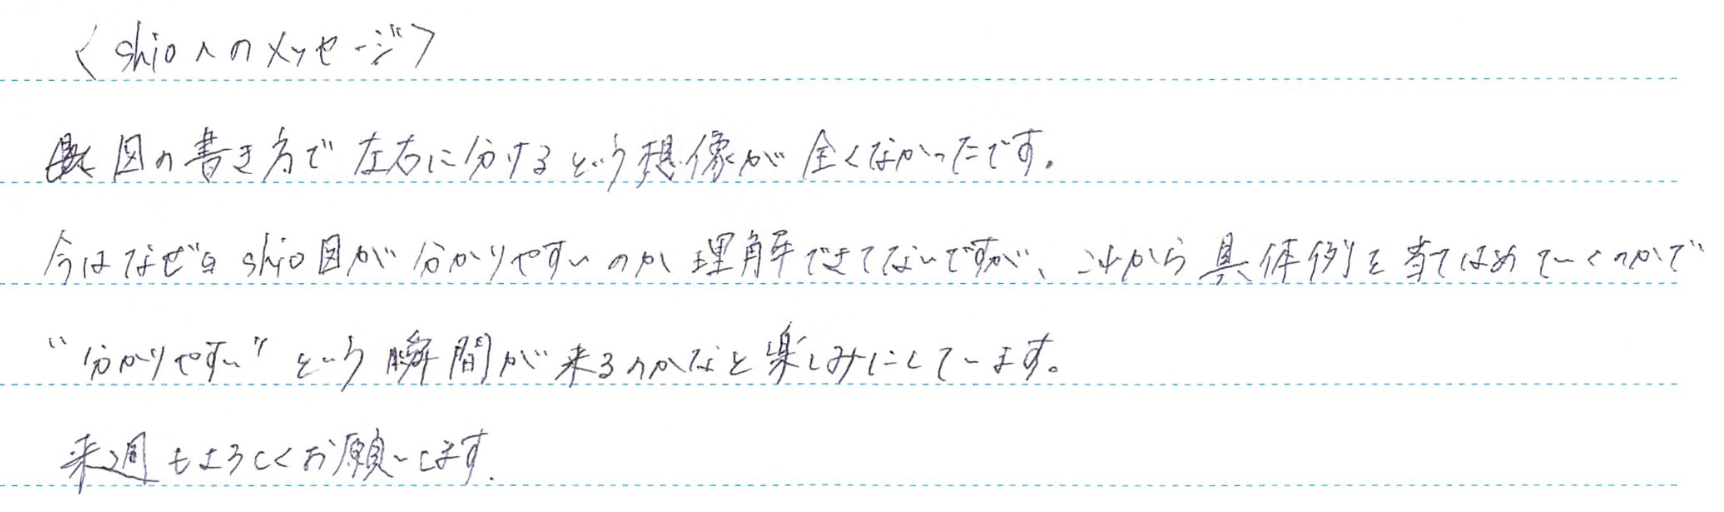 〈shioへのメッセージ〉
図の書き方で左右に分けるという想像が全くなかったです。
今はなぜshio図が分かりやすいのか理解できてないですが、これから具体例を当てはめていくのかで
"分かりやすい"という瞬間が来るのかなと楽しみにしています。
来週もよろしくお願いします.